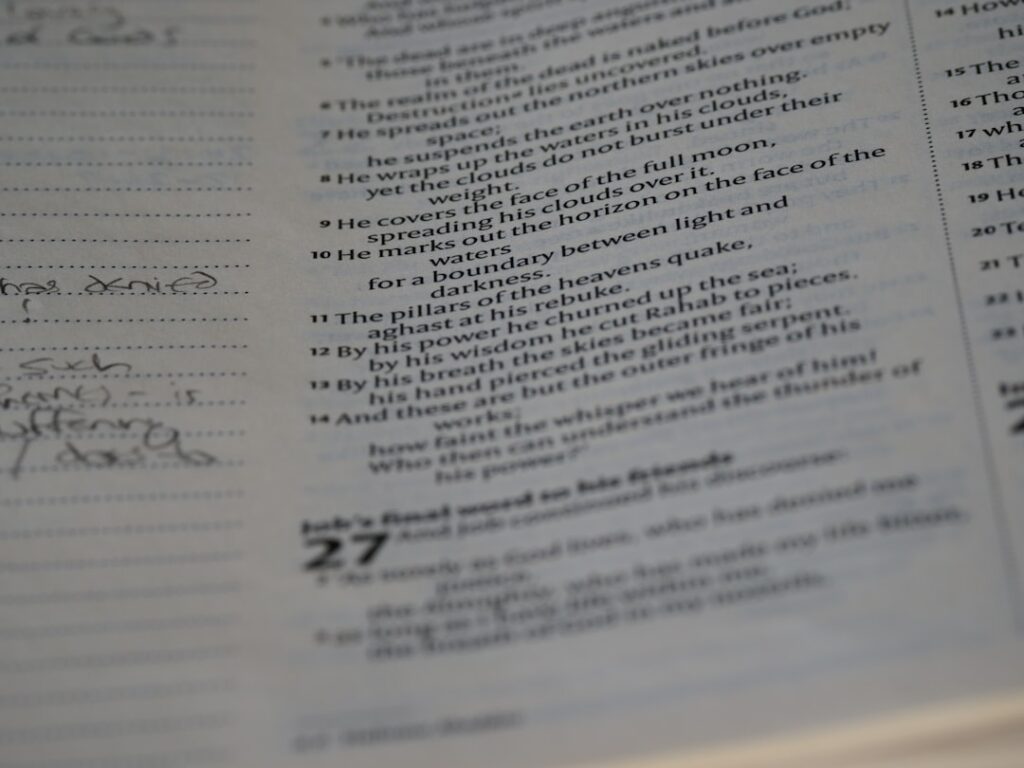 has denied
such
is
suffering
And whose spirit
5 "The dead are in deep anguish,
those beneath the waters and all
in them.
6 The realm of the dead is naked before God;
Destruction lies uncovered.
7 He spreads out the northern skies over empty
space;
he suspends the earth over nothing.
8 He wraps up the waters in his clouds,
yet the clouds do not burst under their
weight.
9 He covers the face of the full moon,
spreading his clouds over it.
10 He marks out the horizon on the face of the
waters
for a boundary between light and
darkness.
11 The pillars of the heavens quake,
aghast at his rebuke.
12 By his power he churned up the sea;
by his wisdom he cut Rahab to pieces.
13 By his breath the skies became fair;
his hand pierced the gliding serpent.
14 And these are but the outer fringe of his
works;
how faint the whisper we hear of him!
Who then can understand the thunder of
his power?"
Job's final word to his friends
27 And Job continued his discourse:
2 "As surely as God lives, who has denied me
justice,
the Almighty, who has made my life bitter,
3 as long as I have life within me,
the breath of God in my nostrils,
14 How
15 The
16 Tho
17 wh
18 Th
19 He
20 Te
21 T
22